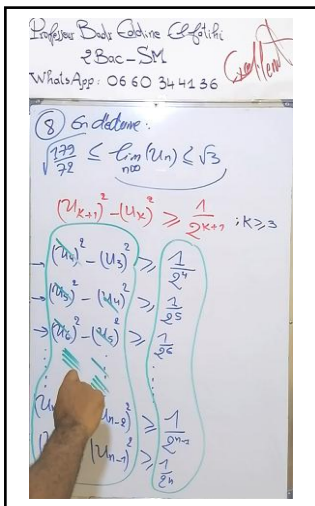 Professeur Badr Eddine El fatihi
2Bac-SM
WhatsApp: 0660344136
Excellent
8 En déduire:
√(179/72) ≤ lim n→∞ (Un) ≤ √3
(Uk+1)² - (Uk)² ≥ 1/2^(k+1) ; k≥3
→ (U4)² - (U3)² ≥ 1/2^4
→ (U5)² - (U4)² ≥ 1/2^5
→ (U6)² - (U5)² ≥ 1/2^6
(Un-2)² ≥ 1/2^(n-1)
(Un-1)² ≥ 1/2^n